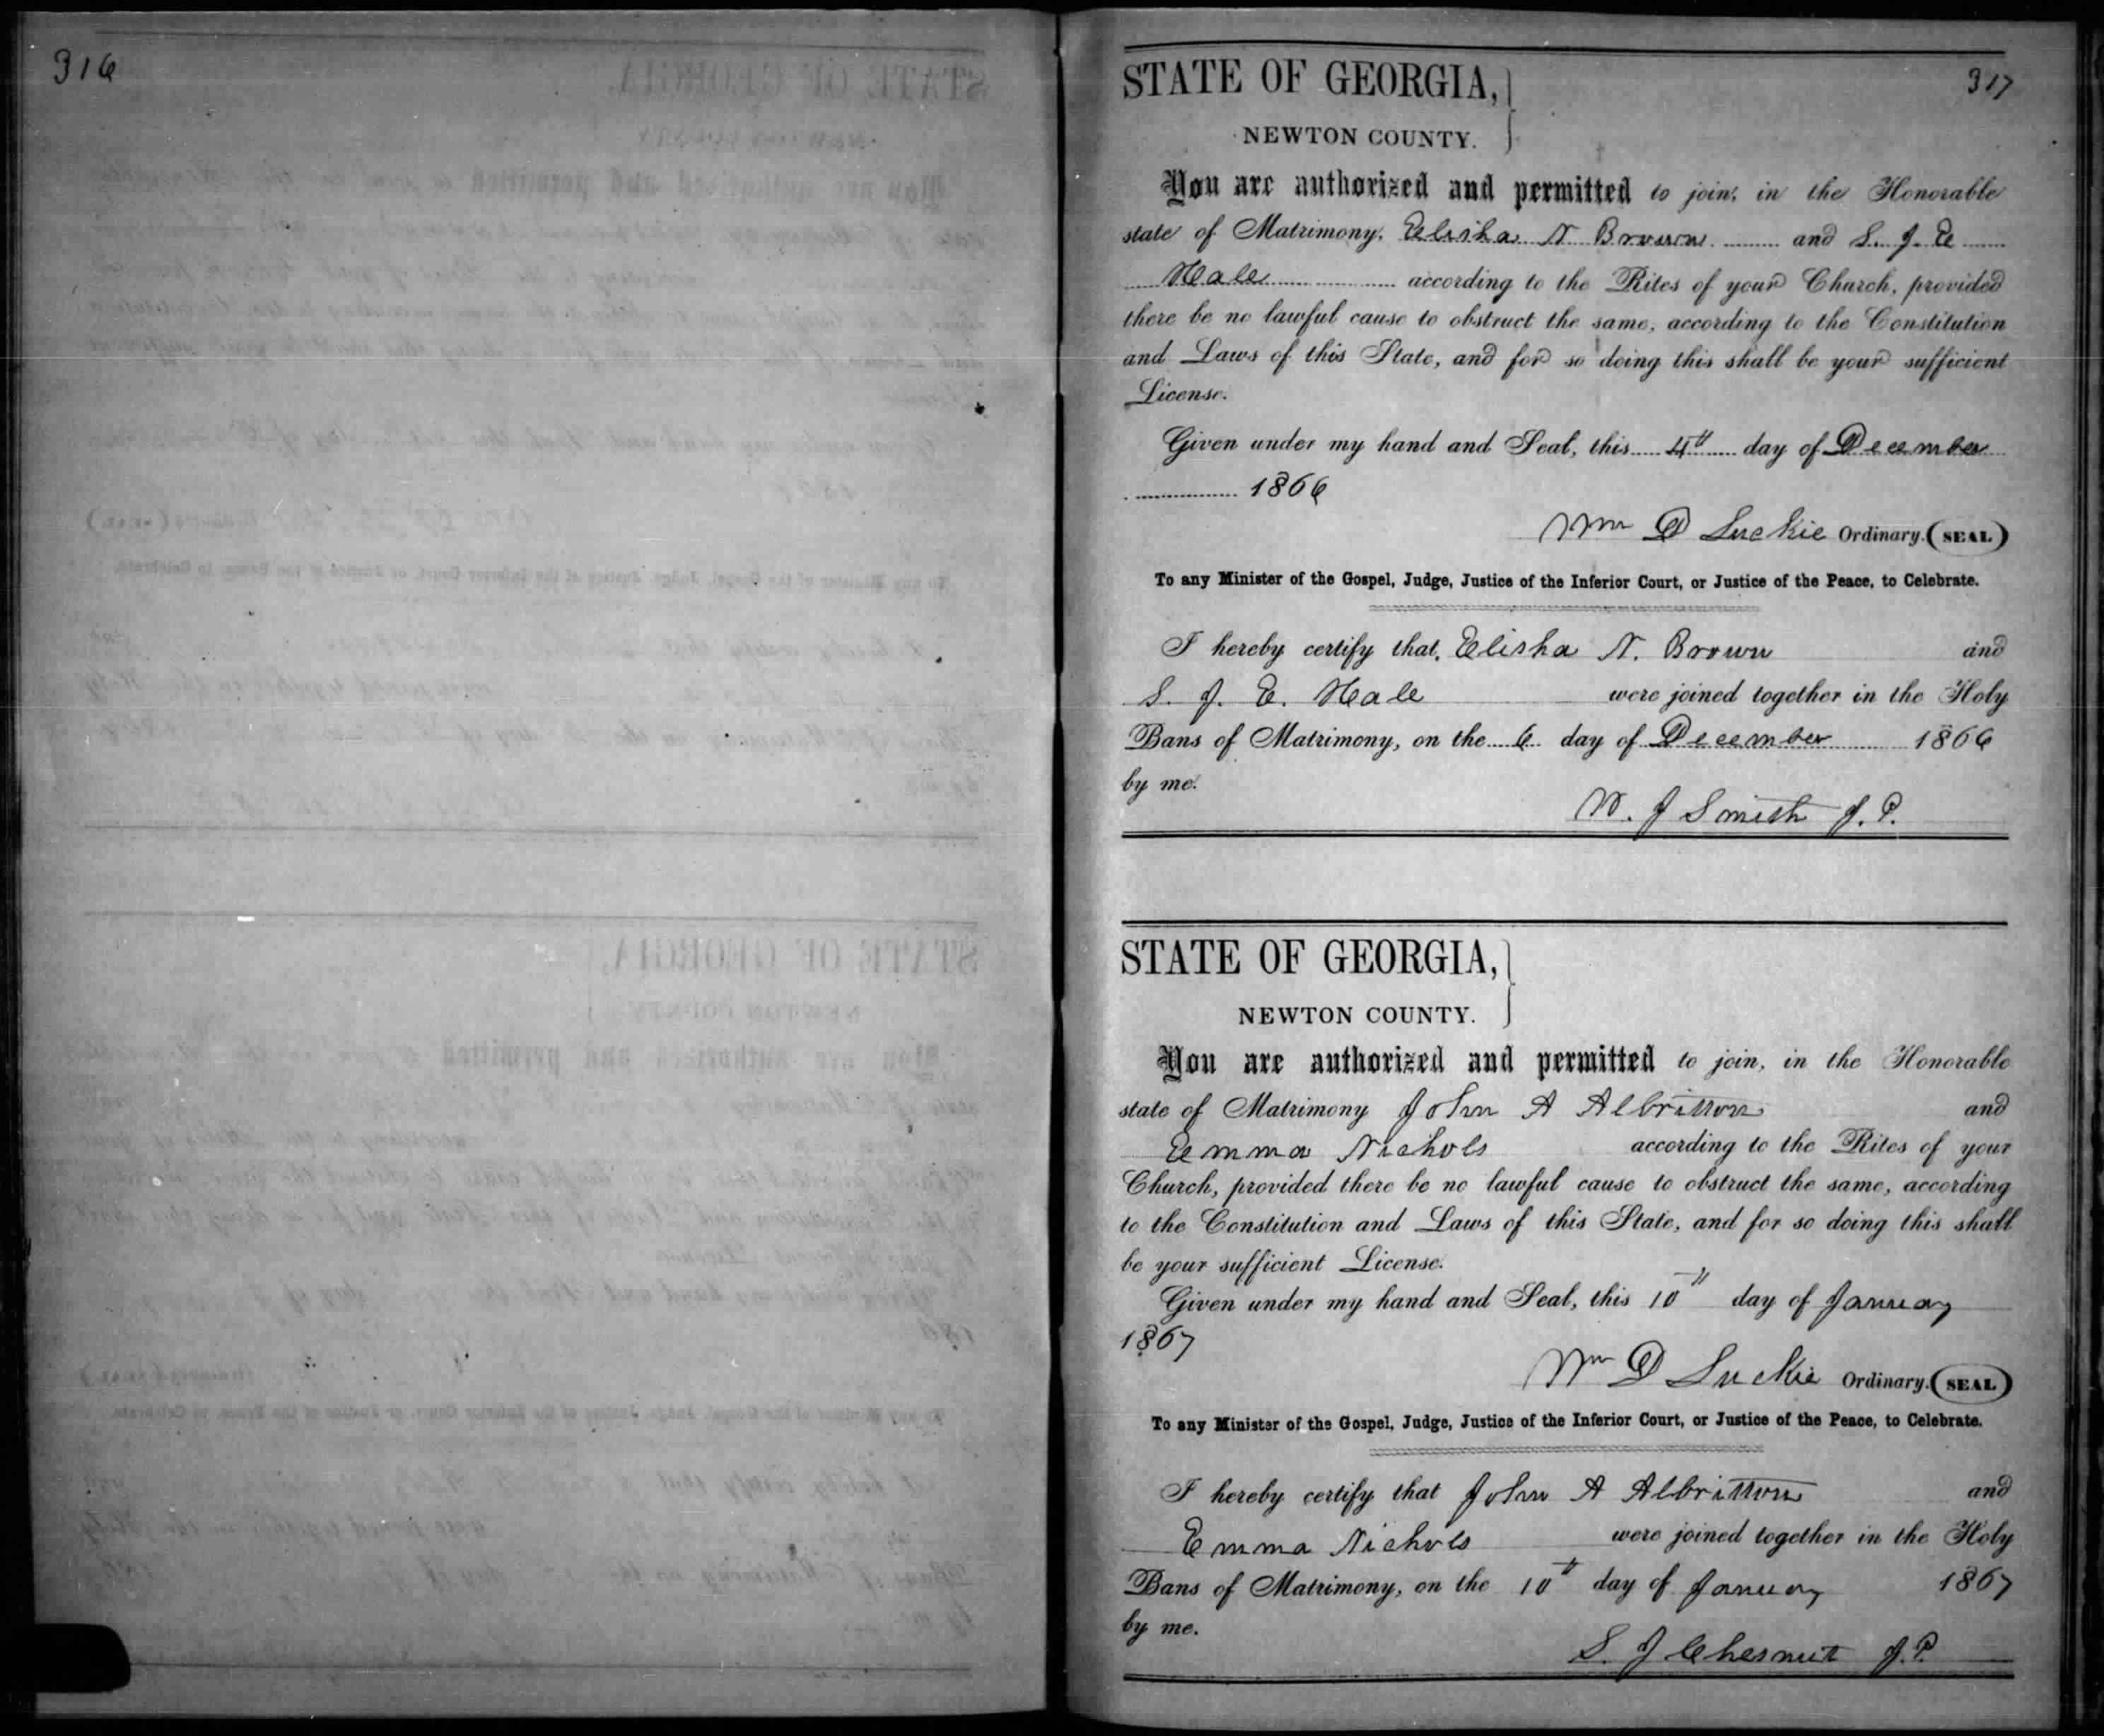 316
317
STATE OF GEORGIA,
NEWTON COUNTY.
You are authorized and permitted to join, in the Honorable
state of Matrimony, Elisha N Brown and S. J. E
Hale according to the Rites of your Church, provided
there be no lawful cause to obstruct the same, according to the Constitution
and Laws of this State, and for so doing this shall be your sufficient
License.
Given under my hand and Seal, this 4th day of December
1866
Wm D Luckie Ordinary. (SEAL)
To any Minister of the Gospel, Judge, Justice of the Inferior Court, or Justice of the Peace, to Celebrate.
I hereby certify that, Elisha N. Brown and
S. J. E. Hale were joined together in the Holy
Bans of Matrimony, on the 6 day of December 1866
by me.
W. J Smith J. P.
STATE OF GEORGIA,
NEWTON COUNTY.
You are authorized and permitted to join, in the Honorable
state of Matrimony John A Albritton and
Emma Nichols according to the Rites of your
Church, provided there be no lawful cause to obstruct the same, according
to the Constitution and Laws of this State, and for so doing this shall
be your sufficient License.
Given under my hand and Seal, this 10th day of January
1867
Wm D Luckie Ordinary. (SEAL)
To any Minister of the Gospel, Judge, Justice of the Inferior Court, or Justice of the Peace, to Celebrate.
I hereby certify that John A Albritton and
Emma Nichols were joined together in the Holy
Bans of Matrimony, on the 10th day of January 1867
by me.
S. J Chesnut J. P.